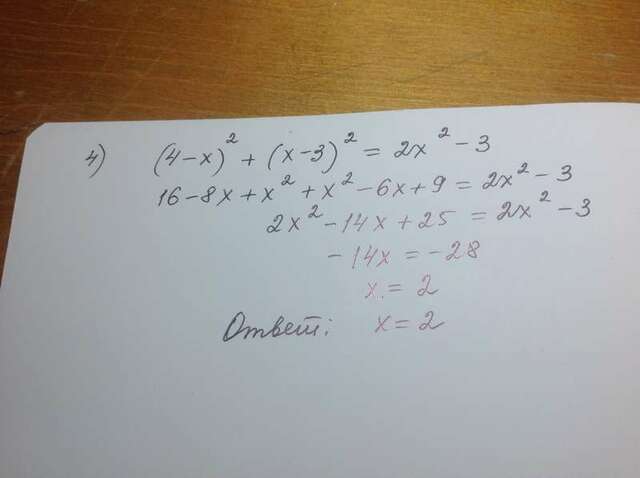 4) (4-x)² + (x-3)² = 2x² - 3
16-8x+x²+x²-6x+9 = 2x²-3
2x²-14x+25 = 2x²-3
-14x = -28
x = 2
Ответ: x = 2